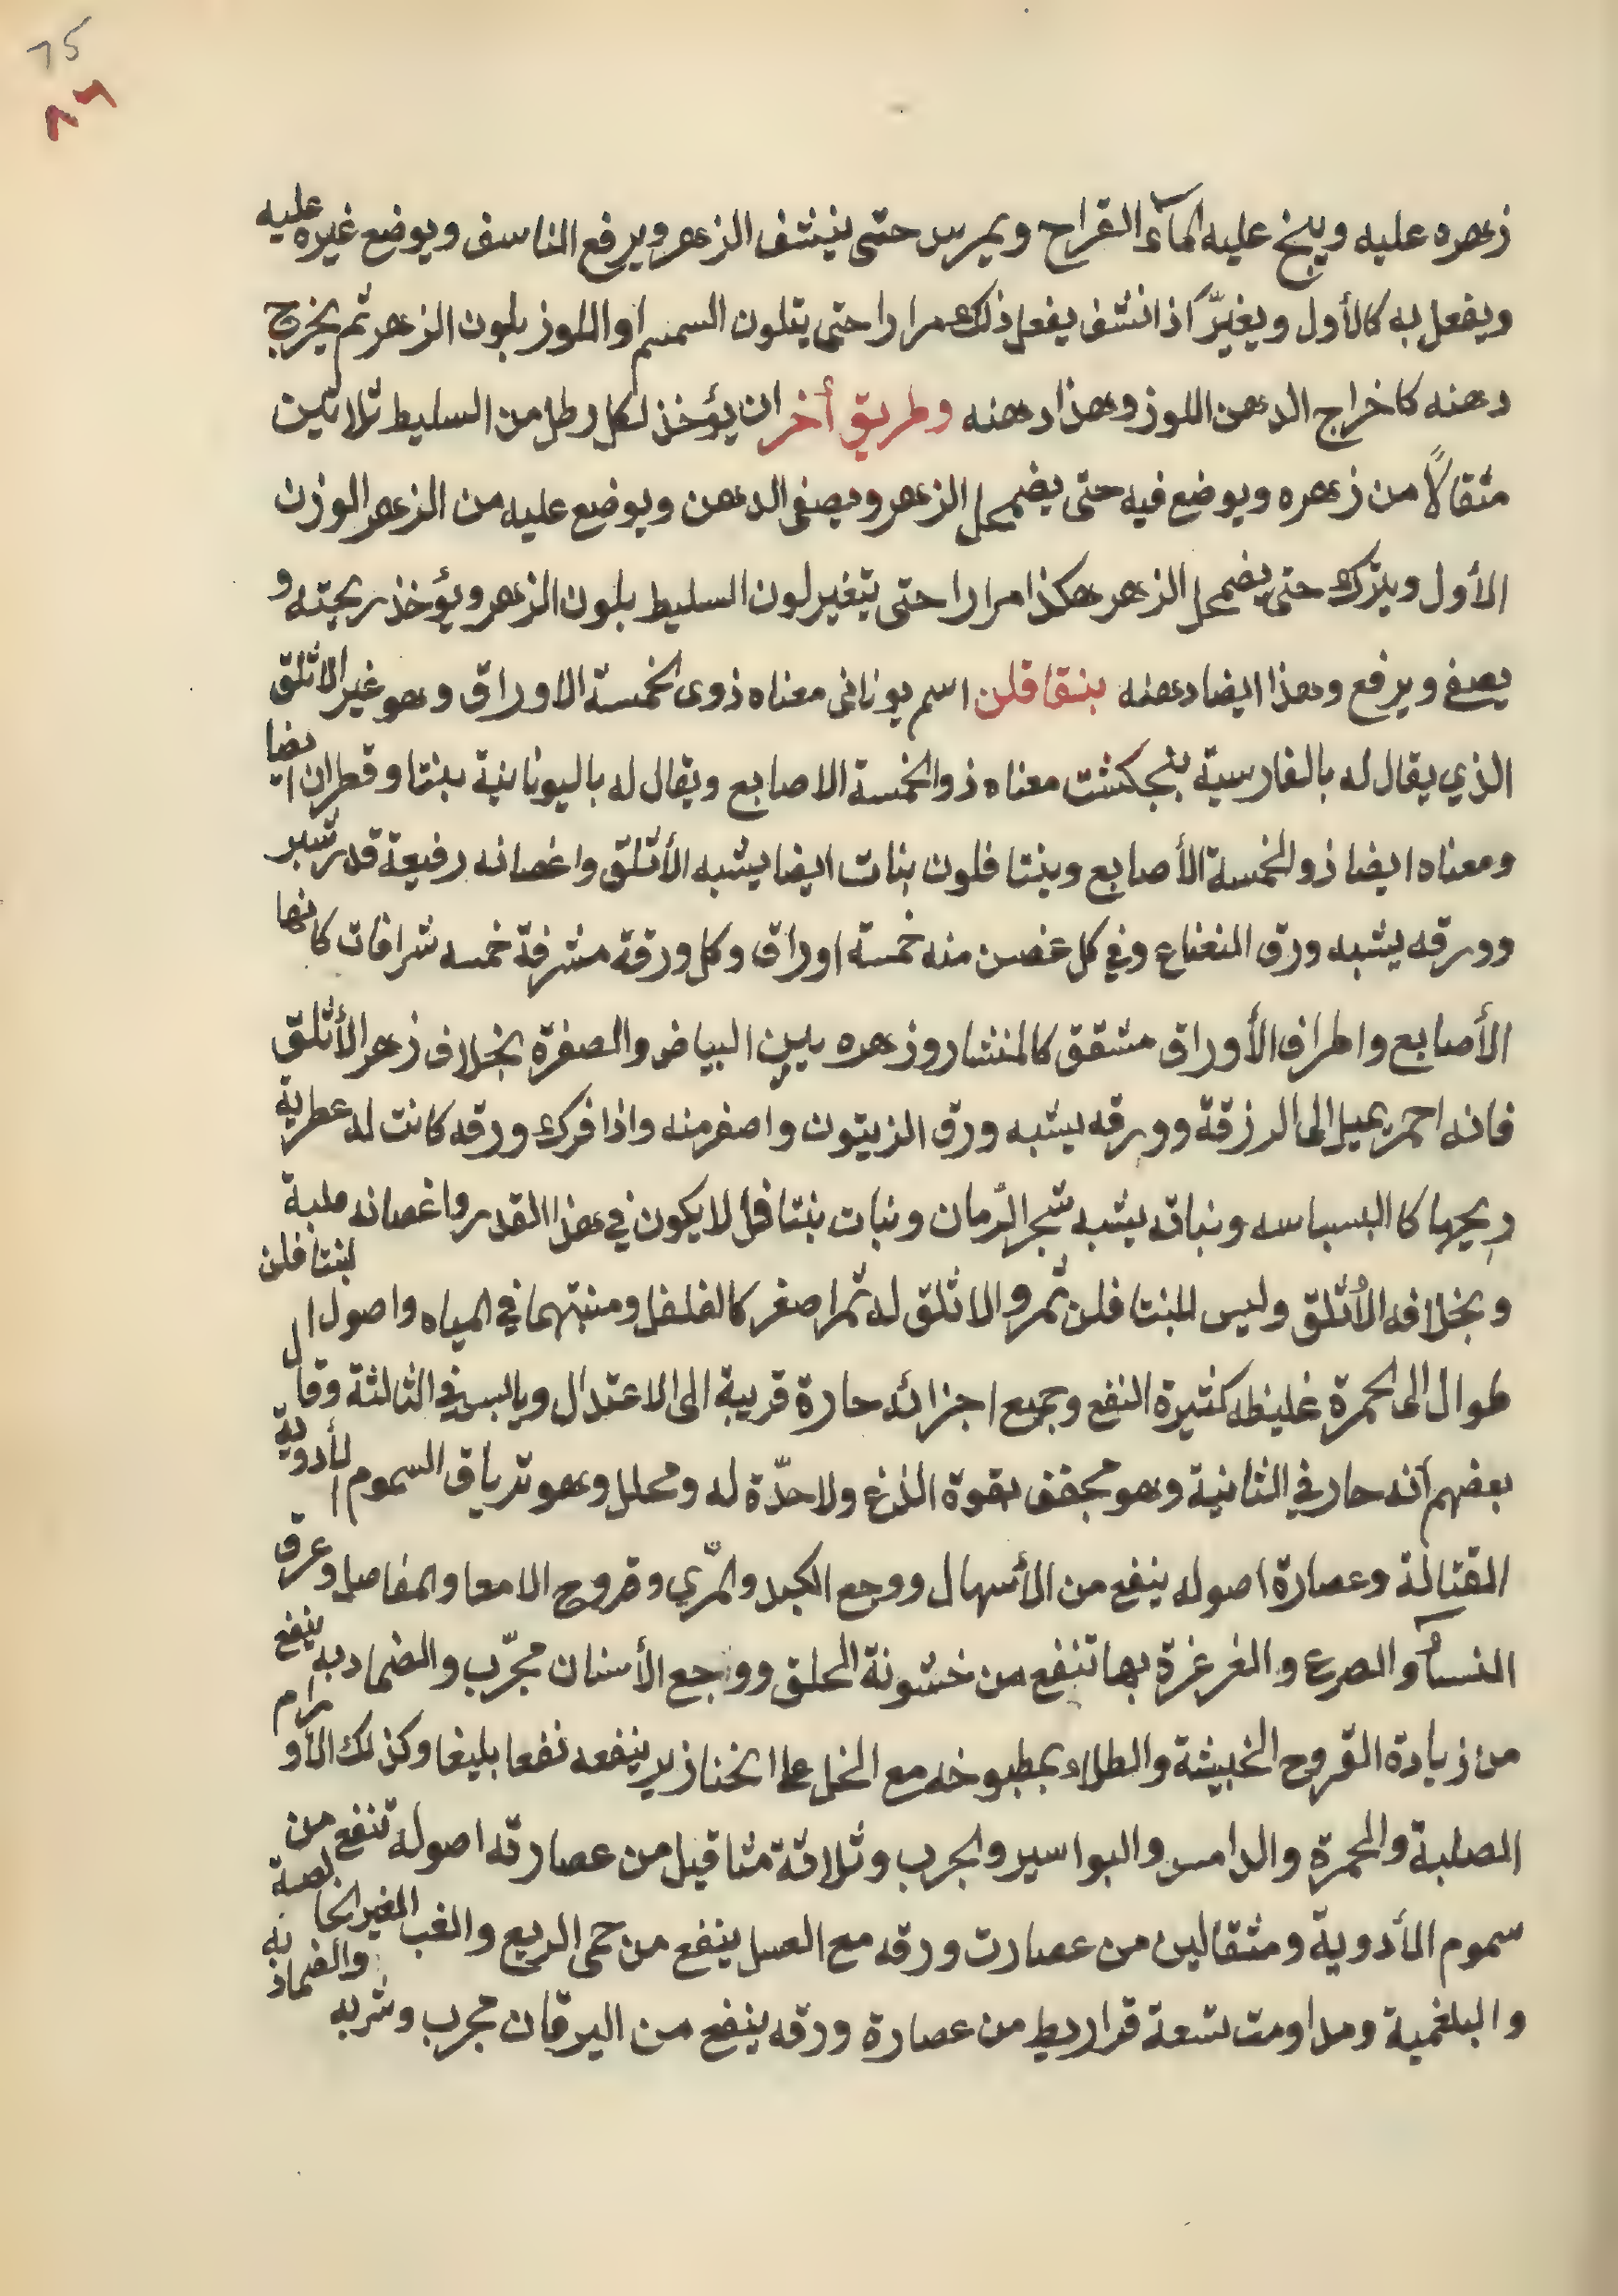 75
٨٦
زهره عليه ويبخ عليه المآء القراح ويمرس حتى ينشف الزهر ويرفع الناسف ويوضع غيره عليه
ويفعل به كالأول ويغيّر اذا نشف يفعل ذلك مرارا حتى يتلون السمسم او اللوز بلون الزهر ثم يخرج
دهنه كاخراج الدهن اللوز وهذا دهنه وطريق أخر ان يؤخذ لكل رطل من السليط ثلاثين
مثقالاً من زهره ويوضع فيه حتى يضمحل الزهر ويصفى الدهن ويوضع عليه من الزهر الوزن
الأول ويترك حتى يضمحل الزهر هكذا مرارا حتى يتغير لون السليط بلون الزهر ويؤخذ ريحته و
يصفى ويرفع وهذا ايضا دهنه بنقاقلن اسم يونانى معناه ذوى الخمسة الاوراق وهو غير الاثلق
الذي يقال له بالفارسية بنجكشت معناه ذوالخمسة الاصابع ويقال له باليونانية بنتا وقطران ايضا
ومعناه ايضا ذو الخمسة الأصابع وبنتا فلون بنات ايضا يشبه الأثلق واغصانه رفيعة قدر شبر
وورقه يشبه ورق النعناع وفي كل غصن منه خمسة اوراق وكل ورقة مشرفة خمسه شرافات كانها
الأصابع واطراف الأوراق مشقق كالمنشار وزهره بين البياض والصفرة بخلاف زهر الأثلق
فانه احمر يميل الى الزرقة وورقه يشبه ورق الزيتون واصفر منه واذا فرك ورقه كانت له عطرية
ريحها كا البسباسه ونباته يشبه شجر الرّمان ونبات بنتافل لا يكون في هذا القدر واغصانه صلبة
وبخلافه الأثلق وليس للبنتا فلن ثمر والاثلق له ثمر اصغر كالفلفل ومنبتهما في المياه واصول ا لبنتا فلن
طوال الى الحمرة غليظه كثيرة النفع وجميع اجزائه حارة قريبة الى الاعتدال ويابس في الثالثة وقال
بعضهم أنه حار في الثانية وهو مجفف بقوة اللذع ولا حدّة له ومحلل وهو ترياق السموم الأدوية
القتالة وعصارة اصوله ينفع من الأسهال ووجع الكبد والمرّي وقروح الامعا والمفاصل وعرق
النسآ والصرع والغرغرة بها تنفع من خشونة الحلق ووجع الأسنان مجرّب والضماد به ينفع
من زيادة القروح الخبيثة والطلاء بمطبوخه مع الخل على الخنازير ينفعه نفعا بليغا وكذلك الأورام
الصلبة والحمرة والدامس والبواسير والجرب وثلاثة مثاقيل من عصارته اصوله تنفع من
سموم الأدوية ومثقالين من عصارت ورقه مع العسل ينفع من حمى الربع والغب الغير الخالصة
والبلغمية ومداومت تسعة قراريط من عصارة ورقه ينفع من اليرقان مجرب وشربه والضماد به